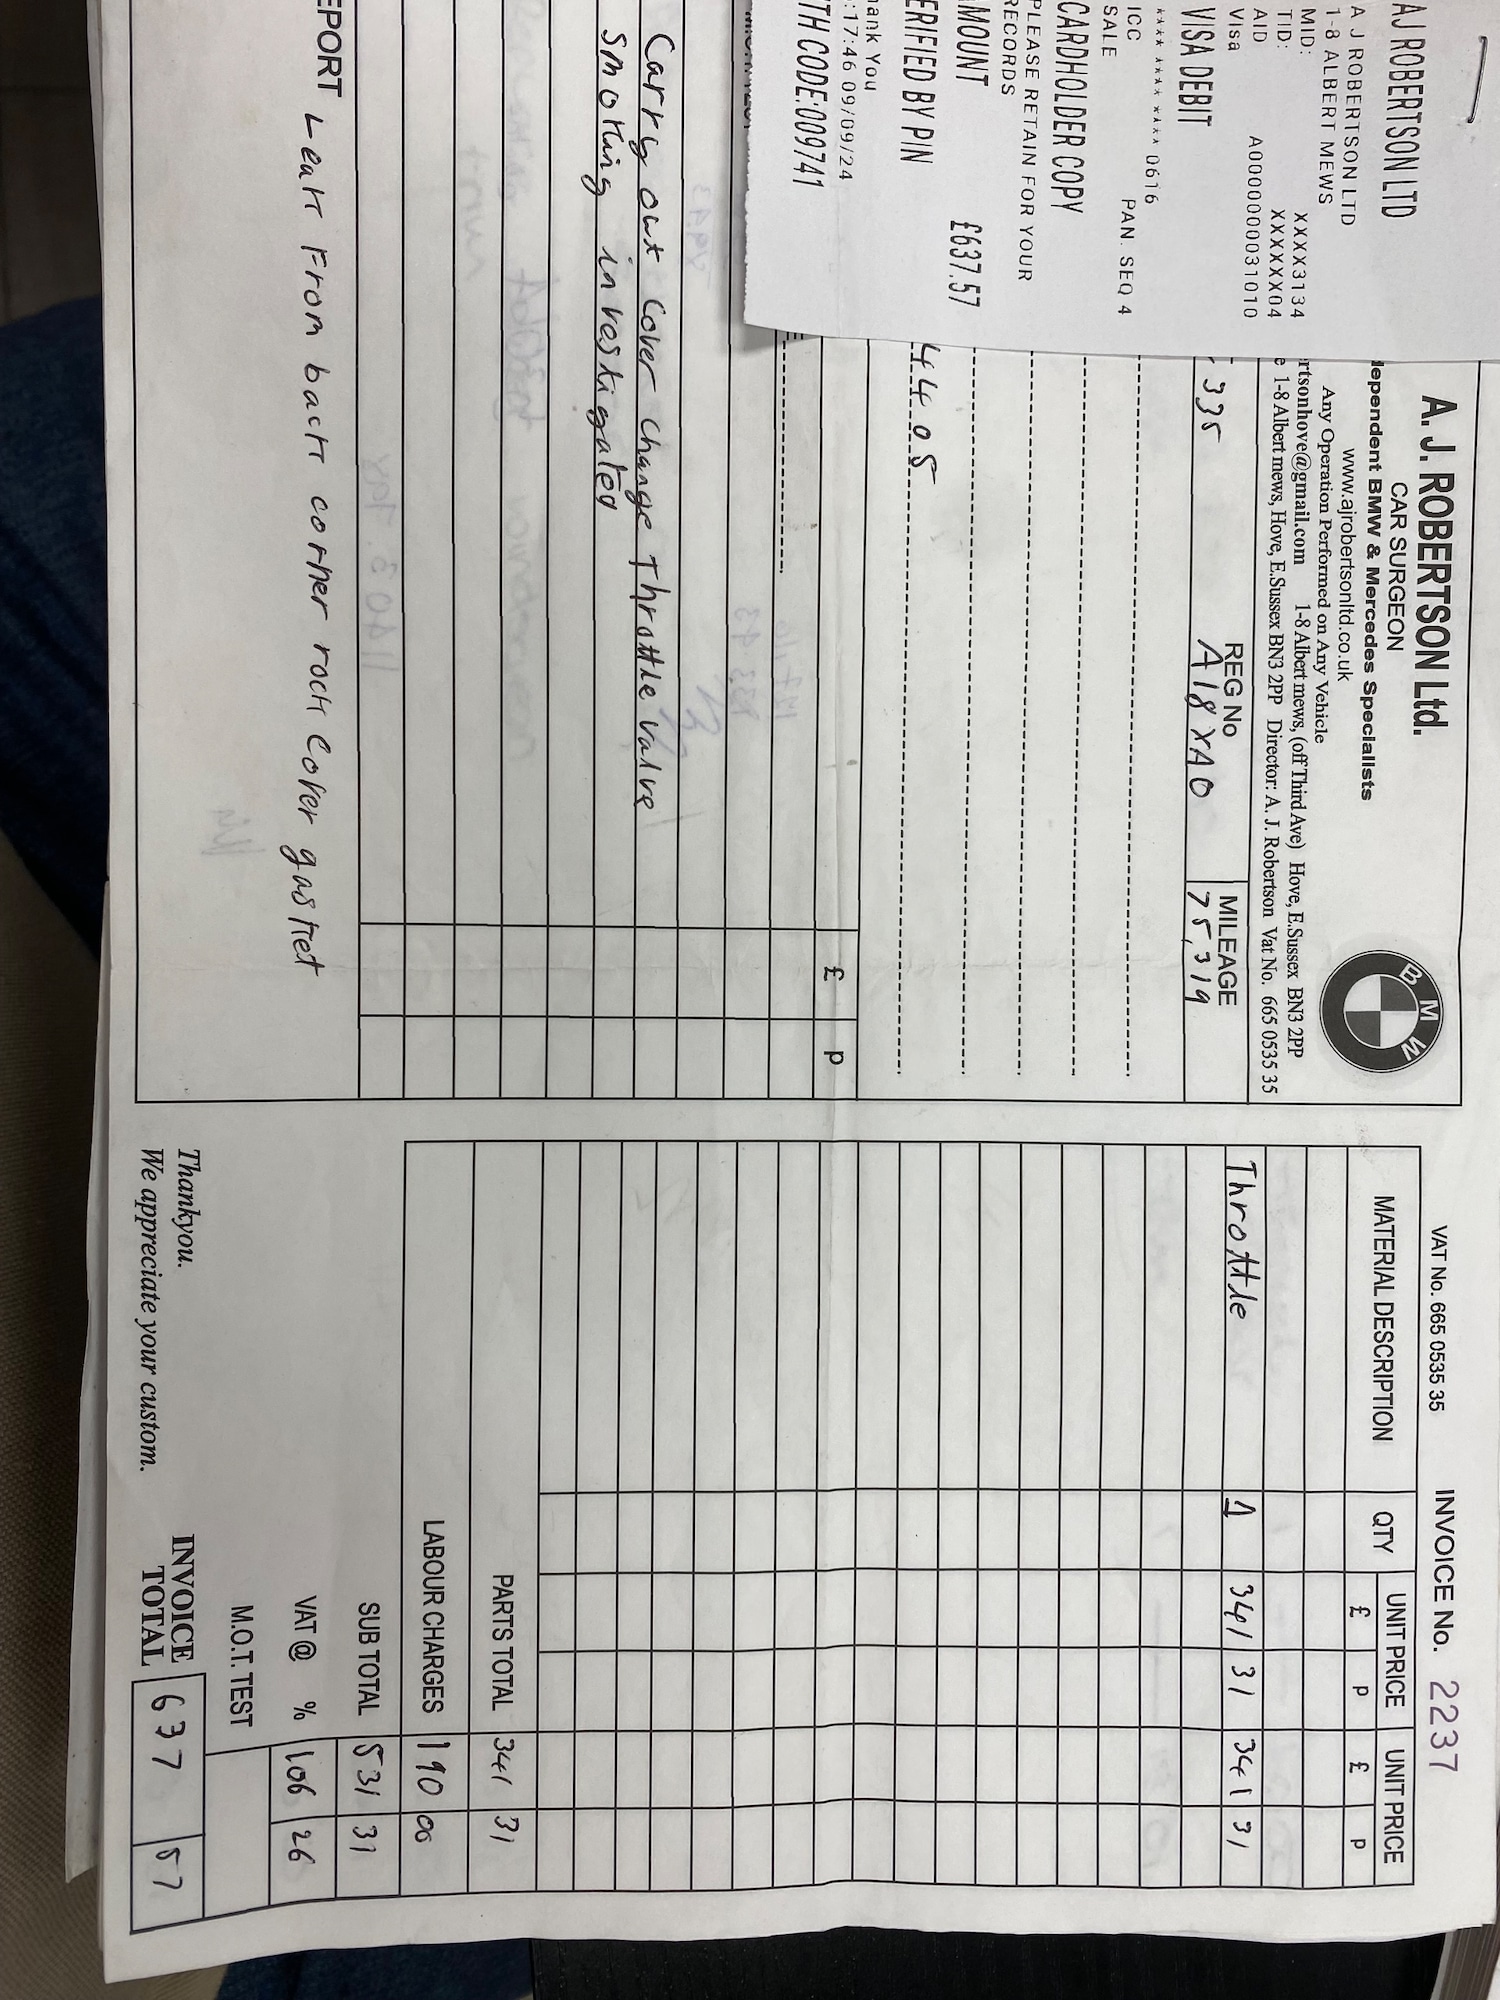 AJ ROBERTSON LTD
A J ROBERTSON LTD
1-8 ALBERT MEWS
MID: XXXX3134
TID: XXXXXX04
AID A0000000031010
Visa
VISA DEBIT
**** **** **** 0616
ICC PAN. SEQ 4
SALE
CARDHOLDER COPY
PLEASE RETAIN FOR YOUR
RECORDS
AMOUNT £637.57
ERIFIED BY PIN
hank You
:17:46 09/09/24
TH CODE:009741
A. J. ROBERTSON Ltd.
CAR SURGEON
dependent BMW & Mercedes Specialists
www.ajrobertsonltd.co.uk
Any Operation Performed on Any Vehicle
rtsonhove@gmail.com 1-8 Albert mews, (off Third Ave) Hove, E.Sussex BN3 2PP
e 1-8 Albert mews, Hove, E.Sussex BN3 2PP Director: A. J. Robertson Vat No. 665 0535 35
BMW
REG No MILEAGE
335 A18 XAO 75,319
4405
£ p
Carry out cover change Throttle valve
Smoking investigated
EPORT Leak From back corner rock cover gasket
VAT No. 665 0535 35 INVOICE No. 2237
MATERIAL DESCRIPTION QTY UNIT PRICE UNIT PRICE
£ p £ p
Throttle 1 341 31 341 31
PARTS TOTAL 341 31
LABOUR CHARGES 190 00
SUB TOTAL 531 31
VAT @ % 106 26
M.O.T. TEST
Thankyou.
We appreciate your custom.
INVOICE
TOTAL 637 57